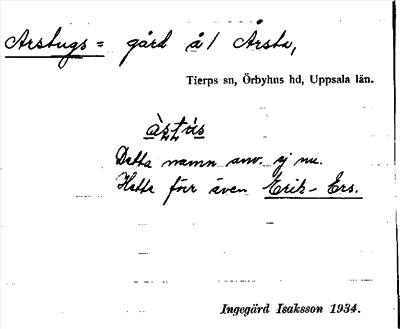 Årstugs= gård å/ Årsta,
Tierps sn, Örbyhus hd, Uppsala län.
Detta namn anv. ej nu.
Hette förr även Erik-Ers.
Ingegärd Isaksson 1934.